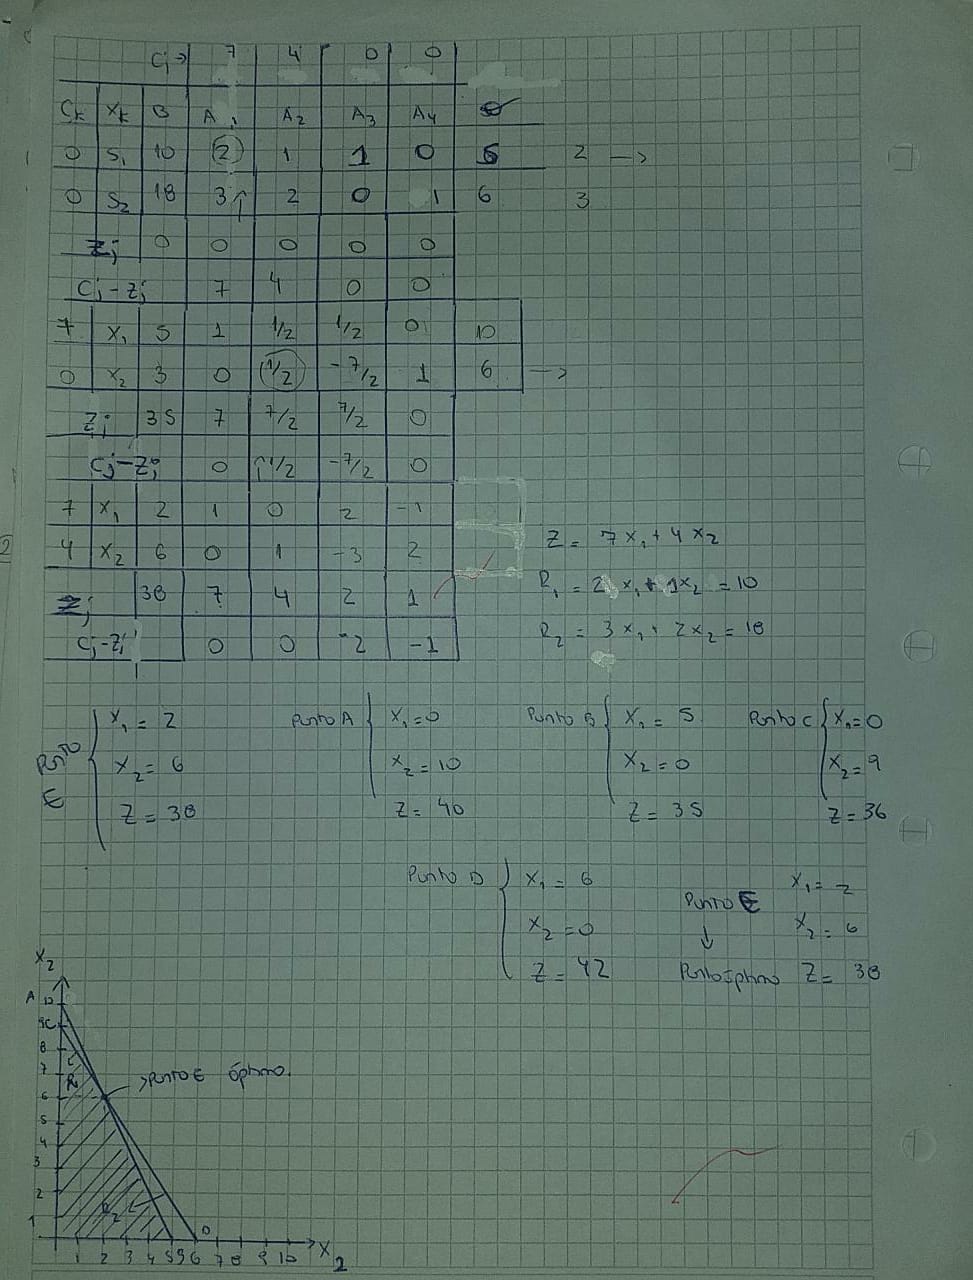 Cj→ 7 4 0 0
Ck Xk B A1 A2 A3 A4 θ
0 S1 10 2 1 1 0 5 2 →
0 S2 18 3↑ 2 0 1 6 3
Zj 0 0 0 0 0
Cj-Zj 7 4 0 0
7 X1 5 1 1/2 1/2 0 10
0 X2 3 0 1/2 -7/2 1 6 →
Zj 35 7 7/2 7/2 0
Cj-Zj 0 ↑1/2 -7/2 0
7 X1 2 1 0 2 -1
4 X2 6 0 1 -3 2
Z = 7X1 + 4X2
Zj 38 7 4 2 1
R1 = 2X1 + 1X2 = 10
Cj-Zj 0 0 -2 -1
R2 = 3X1 + 2X2 = 18
Punto E { X1 = 2
X2 = 6
Z = 38
Punto A { X1 = 0
X2 = 10
Z = 40
Punto B { X1 = 5
X2 = 0
Z = 35
Punto C { X1 = 0
X2 = 9
Z = 36
Punto D { X1 = 6
X2 = 0
Z = 42
Punto E X1 = 2
↓ X2 = 6
Punto óptimo Z = 38
X2
A 10
9C
8
7 R1
→ Punto E óptimo.
6
5
4
3
2 R2
1
D
1 2 3 4 5B 6 7 8 9 10 X2
2